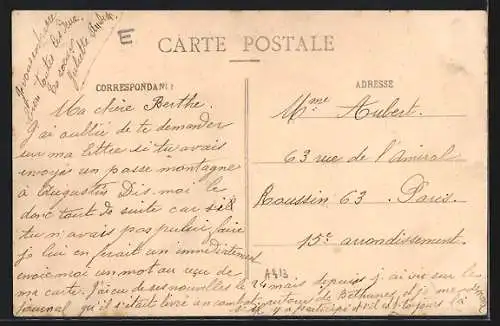 Je vous embrasse
bien toutes les deux.
ta sœur
Juliette
E
CARTE POSTALE
CORRESPONDANCE
ADRESSE
Ma chère Berthe.
J'ai oublié de te demander
sur ma lettre si tu avais
envoyé un passe montagne
à Augustin Dis-moi le
donc tout de suite car si
tu n'avais pas pu lui faire
je lui en ferait un immédiatement
envoie moi un mot au reçu de
ma carte. J'ai eu de ses nouvelles le 24 mais depuis j'ai vu sur le
journal qu'il s'était livré un combat autour de Béthune, et je me
si il y a participé et s'il est toujours là
Mme Aubert.
63 rue de l'Amiral
Roussin 63 Paris.
15e arrondissement.